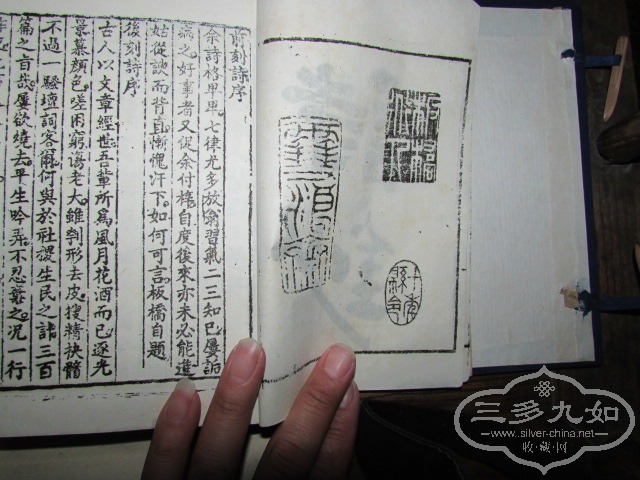 前刻詩序
余詩格卑卑七律尤多放翁習氣二三知己屢詬
病之好事者又促余付梓自度後來亦未必能進
姑從諛而背直慚愧汗下如何可言板橋自題
後刻詩序
古人以文章經世吾輩所爲風月花酒而已逐光
景慕顏色嗟困窮傷老大雖刳形去皮搜精抉髓
不過一騷壇詞客爾何與於社稷生民之計三百
篇之旨哉屢欲燒去平生吟弄不忍棄之况一行
三多九如
www.silver-china.net
收·藏·网